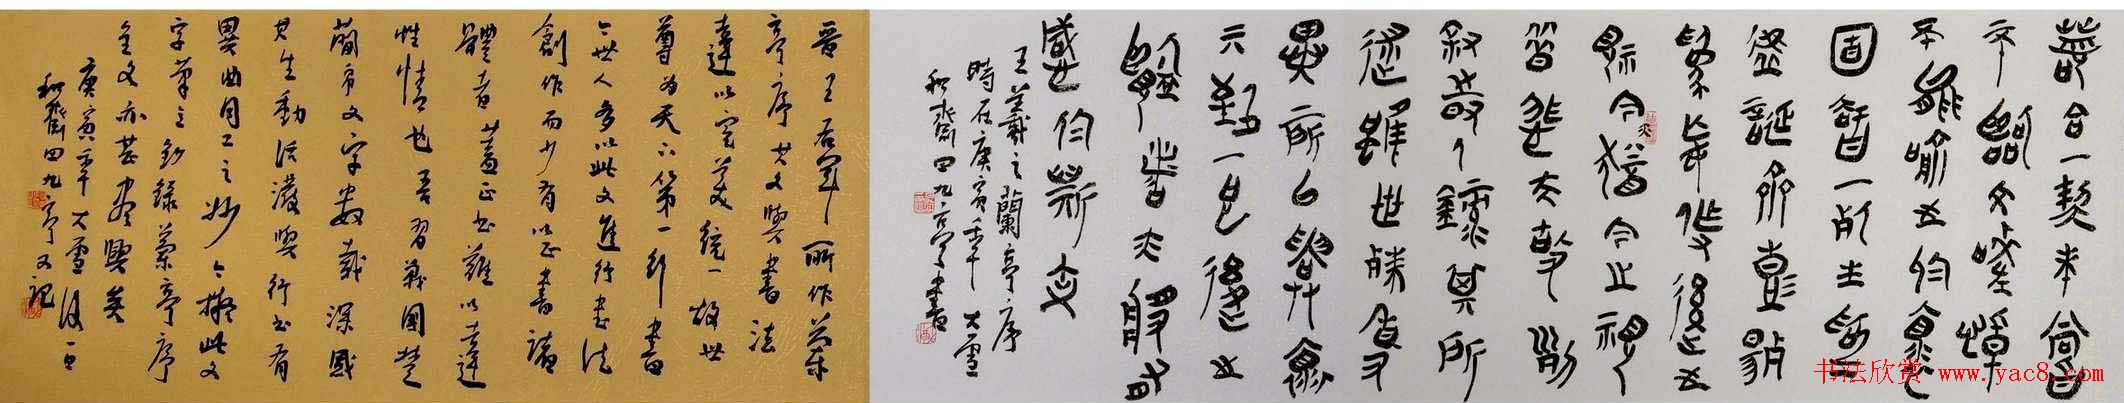 若合一契未嘗
不臨文嗟悼
不能喻之於懷
固知一死生為
虛誕齊彭殤
為妄作後之
視今亦猶今之視
昔悲夫故列
敘時人錄其所
述雖世殊事
異所以興懷
亓致一也後之
覽者亦將有
感於斯文
王羲之蘭亭序
時在庚寅年大雪
和齋四九亭書
晉王右軍所作蘭
亭序其文與書法
達以完美統一故世
尊为天下第一行書
今世人多以此文進行書法
創作而少有以正書諸
體者蓋正書難以達
性情也吾習戰國楚
簡帛文字數載深感
其生動活潑與行書有
異曲同工之妙今擬此文
字筆之鈔錄蘭亭序
全文亦甚盡興矣
庚寅年大雪後一日
和齋四九亭又記
书法欣赏 www.yac8.com